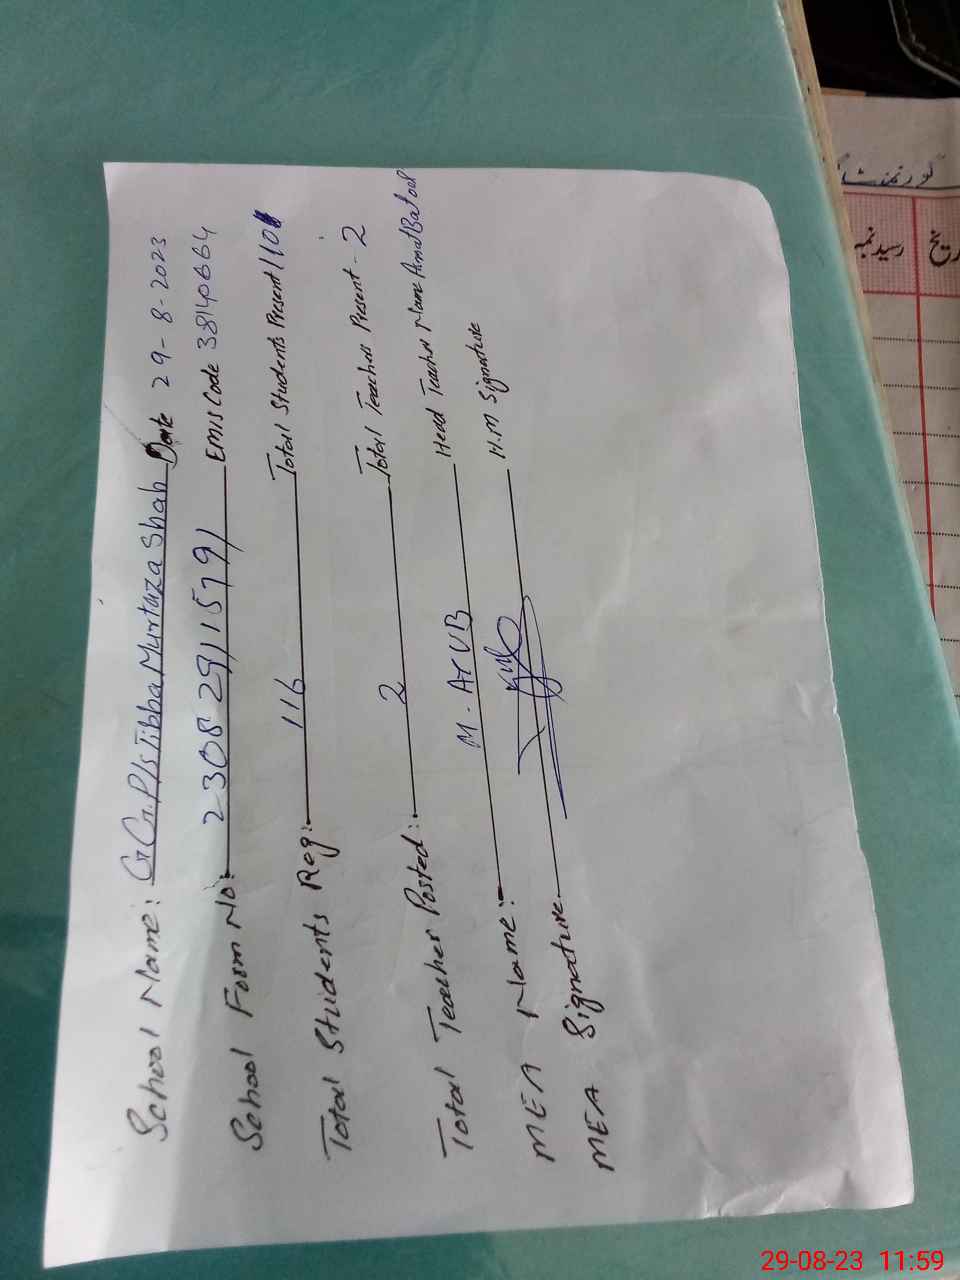 School Name: GGP/s Tibba Murtaza Shah Date 29-8-2023
School Form No: 230829115791 EMIS Code 38140664
Total Students Reg:- 116 Total Students Present 110
Total Teacher Posted:- 2 Total Teacher Present - 2
MEA Name:- M. Head Teacher Name Amat Batool
MEA Signature. H.M Signature
گورنمنٹ
رسید نمبر
تاریخ
29-08-23 11:59